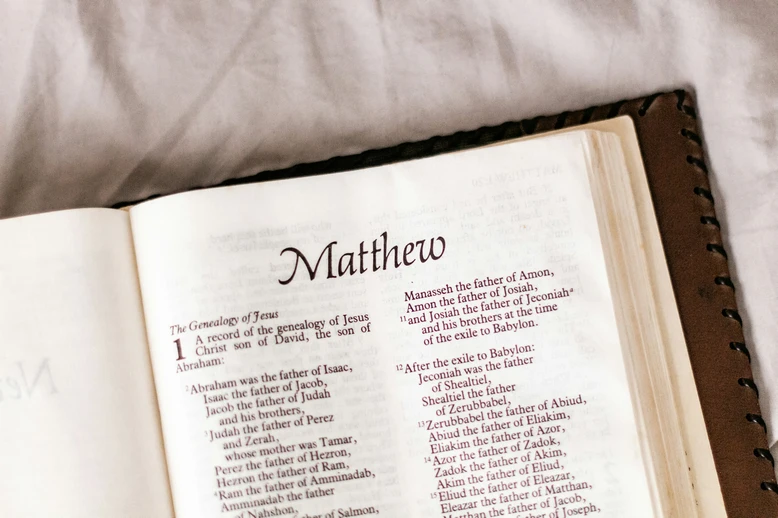 Matthew
The Genealogy of Jesus
1 A record of the genealogy of Jesus
Christ son of David, the son of
Abraham:
2Abraham was the father of Isaac,
Isaac the father of Jacob,
Jacob the father of Judah
and his brothers,
3Judah the father of Perez
and Zerah,
whose mother was Tamar,
Perez the father of Hezron,
Hezron the father of Ram,
4Ram the father of Amminadab,
Amminadab the father
of Nahshon,
father of Salmon,
Manasseh the father of Amon,
Amon the father of Josiah,
11and Josiah the father of Jeconiaha
and his brothers at the time
of the exile to Babylon.
12After the exile to Babylon:
Jeconiah was the father
of Shealtiel,
Shealtiel the father
of Zerubbabel,
13Zerubbabel the father of Abiud,
Abiud the father of Eliakim,
Eliakim the father of Azor,
14Azor the father of Zadok,
Zadok the father of Akim,
Akim the father of Eliud,
15Eliud the father of Eleazar,
Eleazar the father of Matthan,
Matthan the father of Jacob,
father of Joseph,